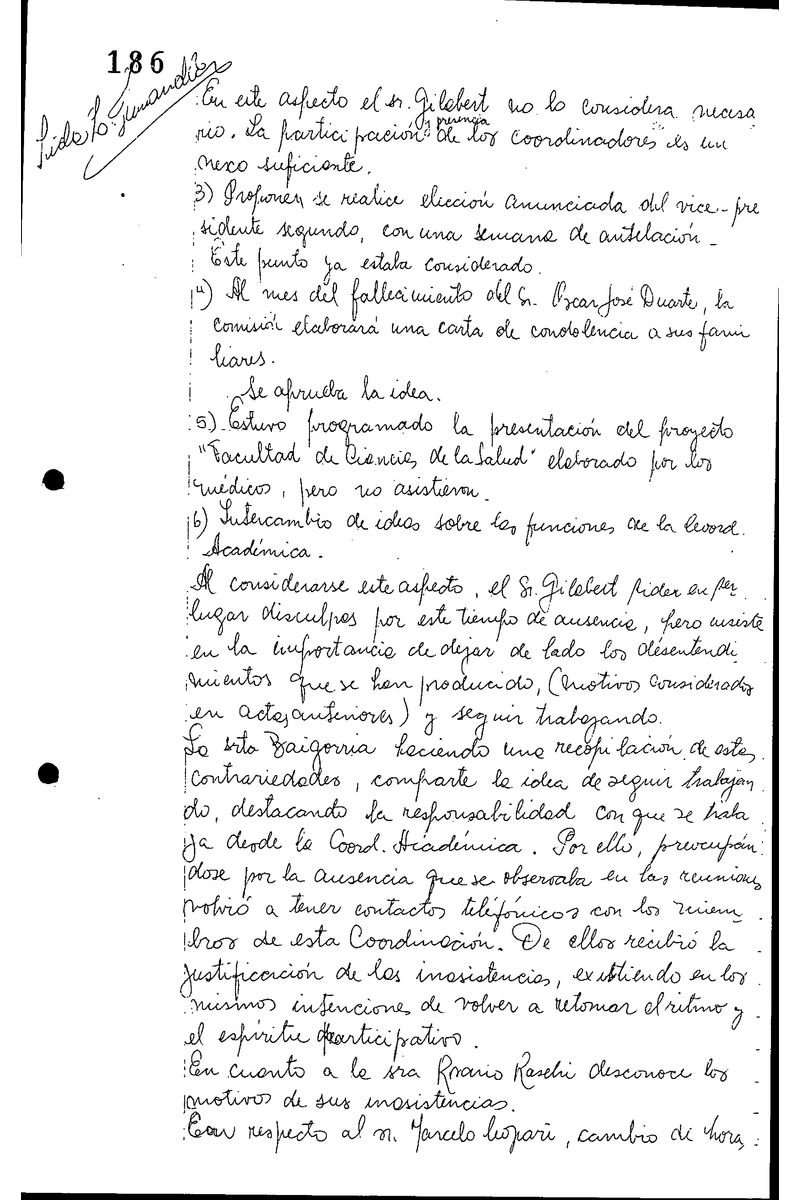 186
En este aspecto el sr. Gilabert no lo considera necesa
rio. La participación y presencia de los coordinadores es un
nexo suficiente.
3) Proponen se realice elección anunciada del vice-pre
sidente segundo, con una semana de antelación -
Este punto ya estaba considerado.
4) Al mes del fallecimiento del Sr. Oscar José Duarte, la
comisión elaborará una carta de condolencia a sus fami
liares.
Se aprueba la idea.
5) Estuvo programado la presentación del proyecto
"Facultad de Ciencias de la Salud" elaborado por los
médicos, pero no asistieron.
6) Intercambio de ideas sobre las funciones de la Coord.
Académica.
Al considerarse este aspecto, el Sr. Gilabert pide en per
lugar disculpas por este tiempo de ausencia, pero insiste
en la importancia de dejar de lado los desentendi
mientos que se han producido, (motivos considerados
en actas anteriores) y seguir trabajando.
La srta Baigorria haciendo una recopilación de estas
contrariedades, comparte la idea de seguir trabajan
do, destacando la responsabilidad con que se traba
ja desde la Coord. Académica. Por ello, preocupán
dose por la ausencia que se observaba en las reuniones
volvió a tener contactos telefónicos con los miem
bros de esta Coordinación. De ellos recibió la
justificación de las inasistencias, existiendo en los
mismos intenciones de volver a retomar el ritmo y
el espíritu participativo.
En cuanto a la sra Rosario Raschi desconoce los
motivos de sus inasistencias.
Con respecto al sr. Marcelo, cambio de hora